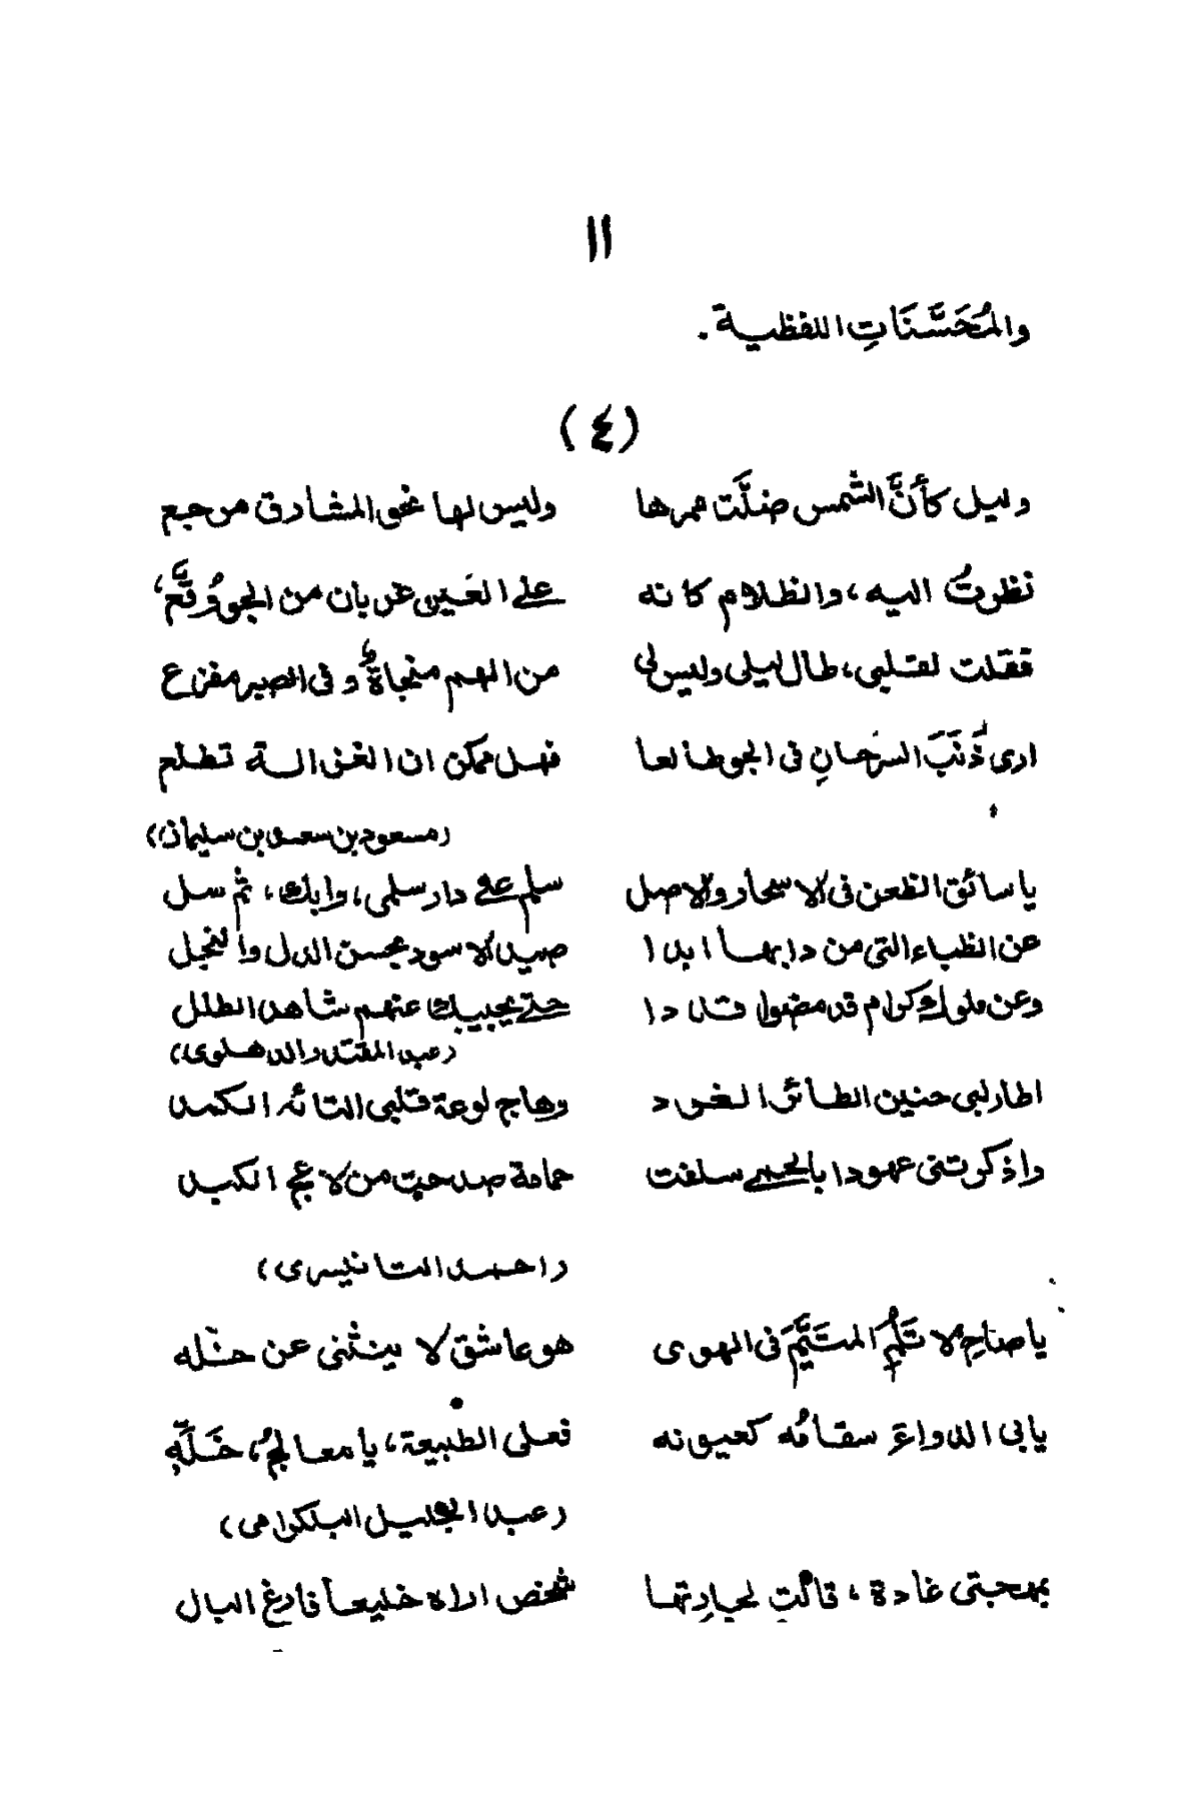 ١١
والمُحَسَّنَاتِ اللفظية.
(٤)
وليل كأَنَّ الشمس ضلَّت ممرها وليس لها نحو المشارق مرجع
نظرتُ اليه، والظلام كانه على العَين غربان من الجو وُقَّع،
فقلت لقلبى، طال ليلى وليس لى من الهم منجاةٌ وفى الصبر مفزع
ارى ذَنَبَ السرحانِ فى الجو طالعا فهل ممكن ان الغزالة تطلع
(مسعود بن سعد بن سليمان)
يا سائق الظعن فى الاسحار والاصل سلم على دار سلمى، وابك، ثم سل
عن الظباء التى من دابها ابدا صيد الاسود بحسن الدل والنجل
وعن ملوك كرام قد مضوا قددا حتى يجيبك عنهم شاهد الطلل
(عبد المقتدر الدهلوى)
اطار لبى حنين الطائر الغرد وهاج لوعة قلبى التائه الكمد
واذكرتنى عهودا بالحمى سلفت حمامة صدحت من لاعج الكبد
(احمد التانيسرى)
يا صاحِ لا تَلُمِ المتَيَّمَ فى الهوى هو عاشق لا ينثنى عن خله
يابى الدواءَ سقامُه كعيونه فعلى الطبيعة، يا معالجُ، خَلِّهِ
(عبد الجليل البلكرامى)
بمهجتى غادة، قالت لجارتها شخص اراه خليعا فارغ البال